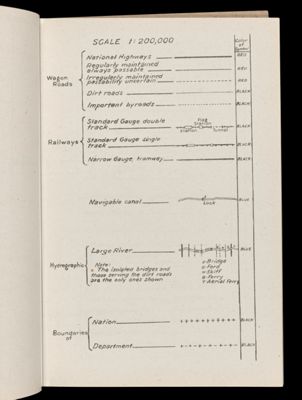 SCALE 1:200,000
Color of Symbol
Wagon Roads
National Highways RED
Regularly maintained
always passable RED
Irregularly maintained
passability uncertain RED
Dirt roads BLACK
Important byroads BLACK
Railways
Standard Gauge double
track BLACK
Flag Station
Station Tunnel
Standard Gauge single
track BLACK
Narrow Gauge, tramway BLACK
Navigable canal BLUE
Lock
Hydrographic
Large River BLUE
Note:
The isolated bridges and
those serving the dirt roads
are the only ones shown
Bridge
Ford
Skiff
Ferry
Aerial Ferry
Boundaries of
Nation BLACK
Department BLACK